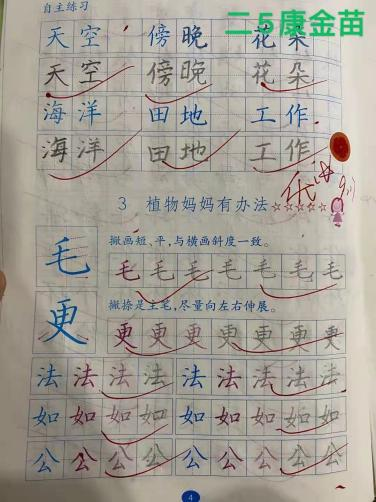 二5康金苗
自主练习
天空 傍晚 花朵
天空 傍晚 花朵
海洋 田地 工作
海洋 田地 工作
3 植物妈妈有办法 ☆☆☆☆☆
毛 撇画短、平,与横画斜度一致。
毛毛毛毛毛毛毛
更 撇捺是主笔,尽量向左右伸展。
更更更更更更更
法法法法 法法法法
如如如如 如如如如
公公公公 公公公公
4